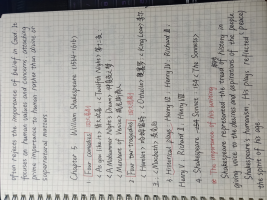 often rejects the importance of belief in God. It
focuses on human values and concerns, attaching
prime importance to human rather than divine or
supernatural matters.
Chapter 6 William Shakespeare (1564-1616)
1. Four comedies
<As you like it> <Twelfth Night> 第十二夜
<A Midsummer Night's Dream> 仲夏夜之梦
<Merchant of Venice> 威尼斯商人
2. Four tragedies
<Hamlet> 哈姆雷特 <Othello> 奥赛罗 <King Lear> 李尔王
3. <Macbeth> 麦克白
Historical plays: Henry IV Richard III
Henry V Richard II Henry VIII
4. Shakespeare 154 (The Sonnets)
The importance of
Shakespeare represented the trend of history in
giving voice to the desires and aspirations of the people.
Shakespeare's humanism: His plays reflected
the spirit of his age